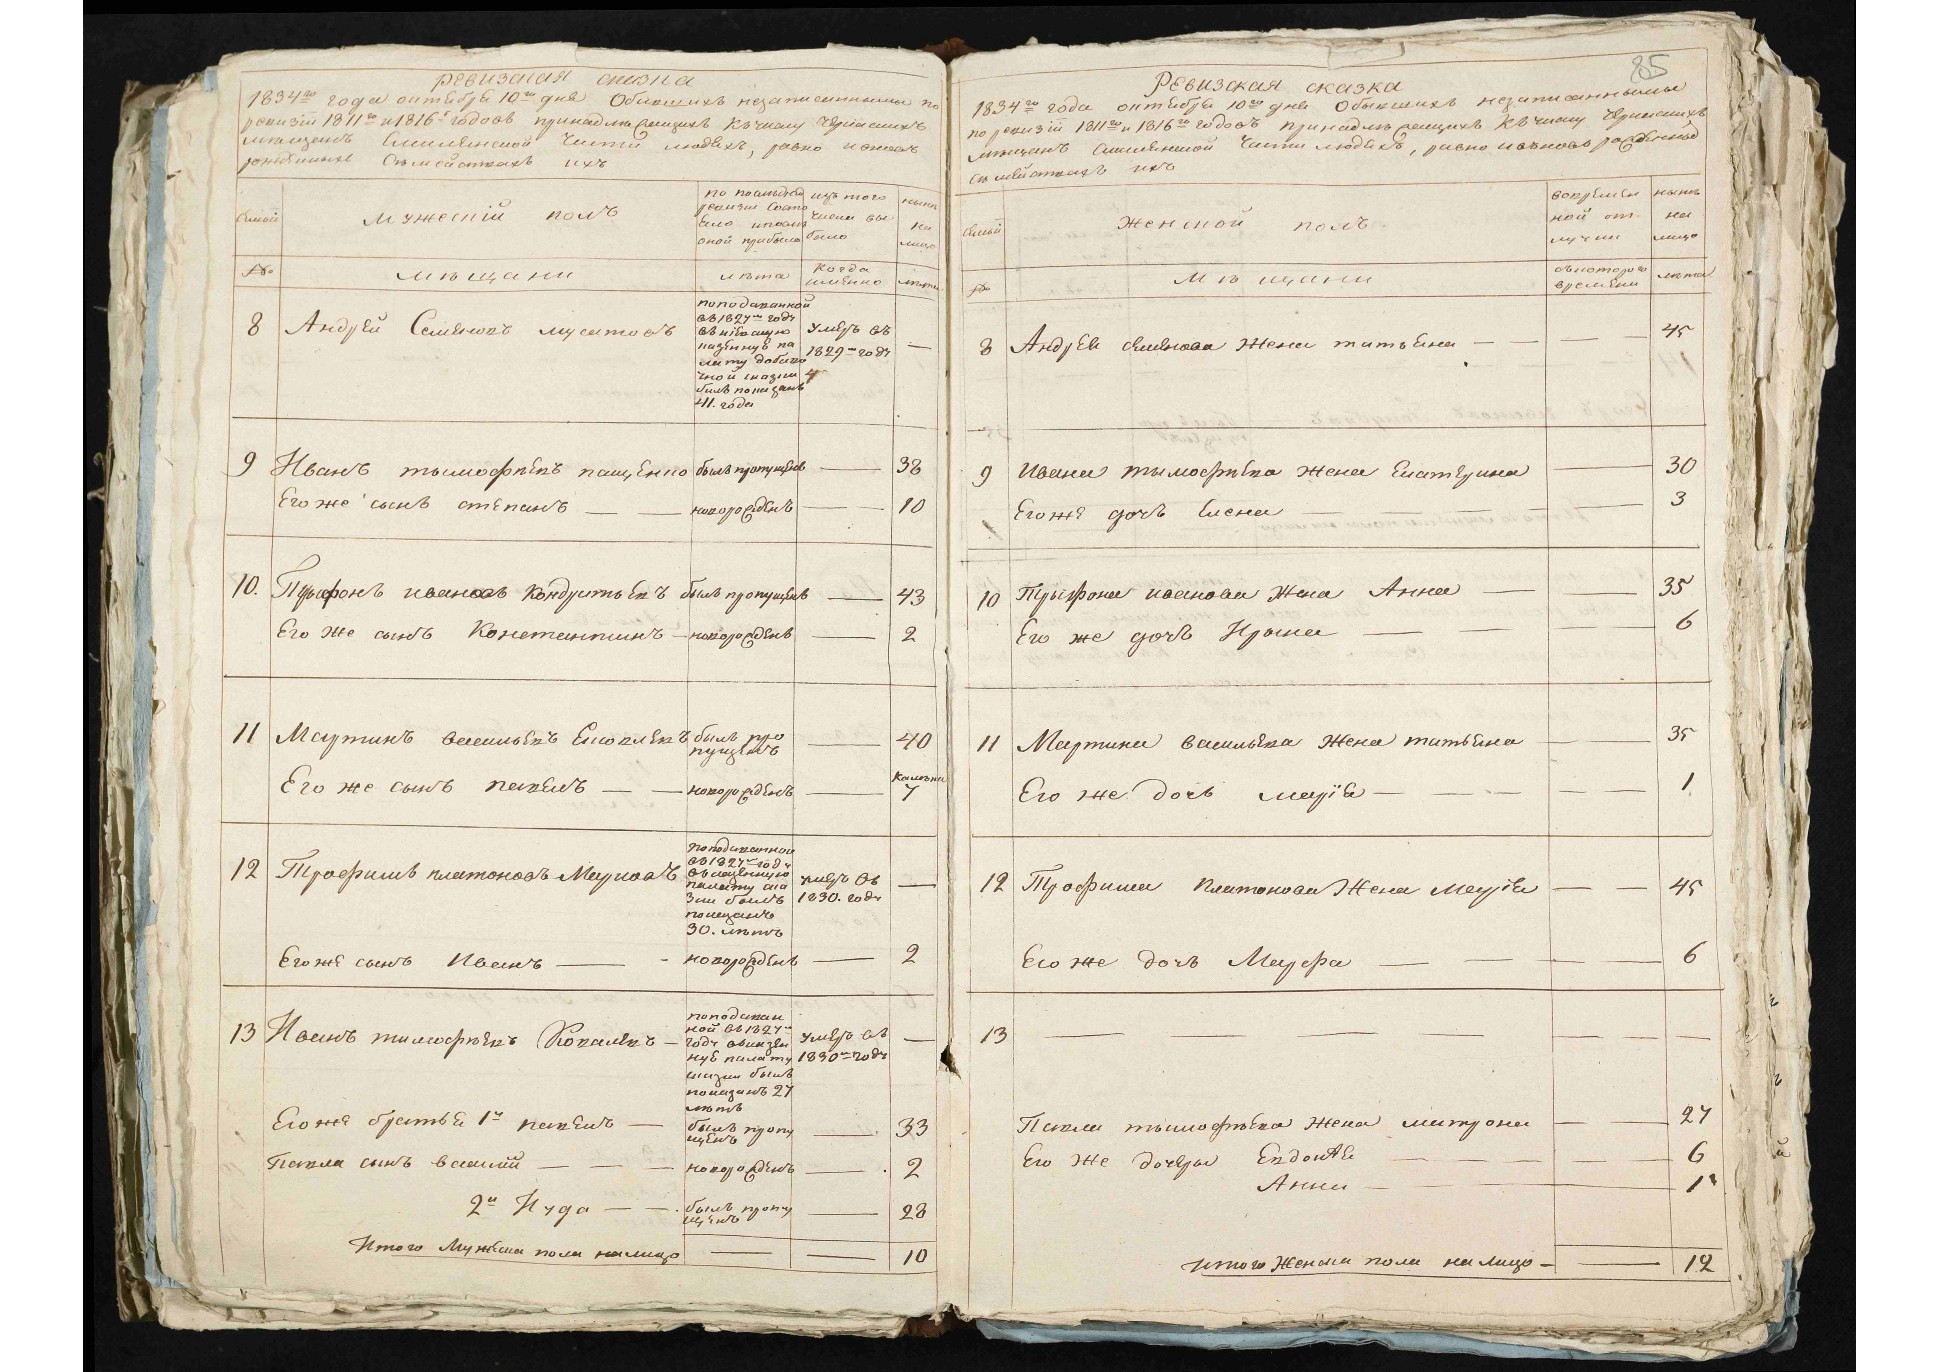 Ревизская сказка
1834го года октября 10го дня Обывшихъ незаписанными по
ревизiи 1811го и 1816го годовъ принадлежащихъ Къчислу Черкаскихъ
мещанъ Смилянской Части людехъ, равно и вновь
рожденныхъ Съмействахъ ихъ
семьи
Мужескiй полъ
по последней
ревизiи состо
яло и после
оной прибыло
изъ того
числа вы
было
ныне
на
лицо
№
Мѣщани
лѣта
Когда
именно
лѣта
8
Андрей Семеновъ мусатовъ
поподаванной
въ1827м годе
въ кiевскую
казенную па
лату добаво
чной сказки
былъ показанъ
41. года
умеръ въ
1829м годе
—
9 Иванъ тымофѣевъ пащенко былъ пропущенъ — 38
Его же сынъ степанъ — — новорожденъ — — 10
10. Трыфонъ ивановъ Кондратьевъ былъ пропущенъ — 43
Его же сынъ Константинъ — новорожденъ — 2
11 Мартинъ васильевъ Яковлевъ былъ про
пущенъ — 40
Его же сынъ павелъ — — новорожденъ — 7
12 Трофимъ платоновъ Марковъ
поподаванной
въ1827м годе
въказенную
палату ска
зки былъ
показанъ
30. лѣтъ
умеръ въ
1830. годе
—
Его же сынъ Иванъ — - новорожденъ — 2
13 Иванъ тимофѣевъ Ковалевъ —
поподаван
ной въ1827м
годе въказен
ную палату
сказки былъ
показанъ 27
лѣтъ
умеръ въ
1830м годе
—
Его же братья 1й павелъ — былъ пропу
щенъ — 33
Павла сынъ василiй — — — новорожденъ — 2
2й Иуда — — былъ пропу
щенъ — 28
Итого Мужеска пола налицо — — 10
85
Ревизская сказка
1834го года октября 10го дня Обывшихъ незаписанными
по ревизiй 1811го и 1816го годовъ принадлежащихъ Къчислу Черкаскихъ
мещанъ Смилянской Части людехъ, равно ивновь рожденныхъ
съмействахъ ихъ
семьи
Женской полъ
вовремен
ной от-
лучки
ныне
на
лицо
№
Мѣщани
съкоторого
времени
лѣта
8 Андрея семенова Жена татьяна — — — — 45
9 Ивана тымофѣева Жена Екатерина — 30
Его же дочь Елена — — — — — 3
10 Трыфона иванова Жена Анна — — 35
Его же дочь Ирына — — — 6
11 Мартина васильева Жена татьяна — — 35
Его же дочь марiя — — — — — 1
12 Трофима Платонова Жена Марiя — — 45
Его же дочь Мавра — — — — 6
13 — — — — — — —
Павла тымофѣева Жена матрона — — 27
Его же дочеры Евдокiя — — — 6
Анна — — — 1
итого Женска пола на лицо — — 12